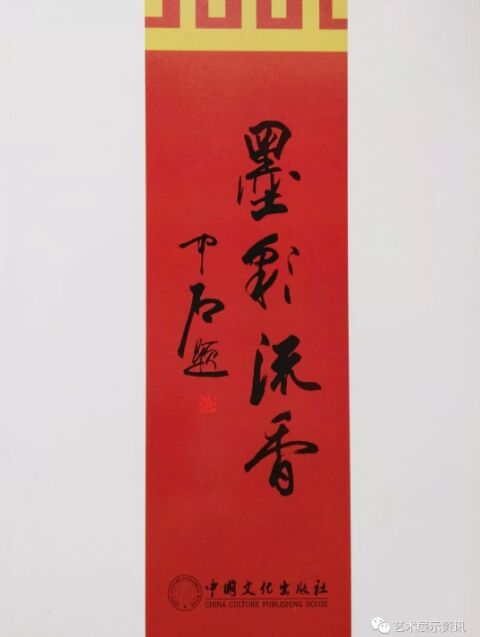 墨彩流香
中石题
中国文化出版社
CHINA CULTURE PUBLISHING HOUSE
艺术展示资讯